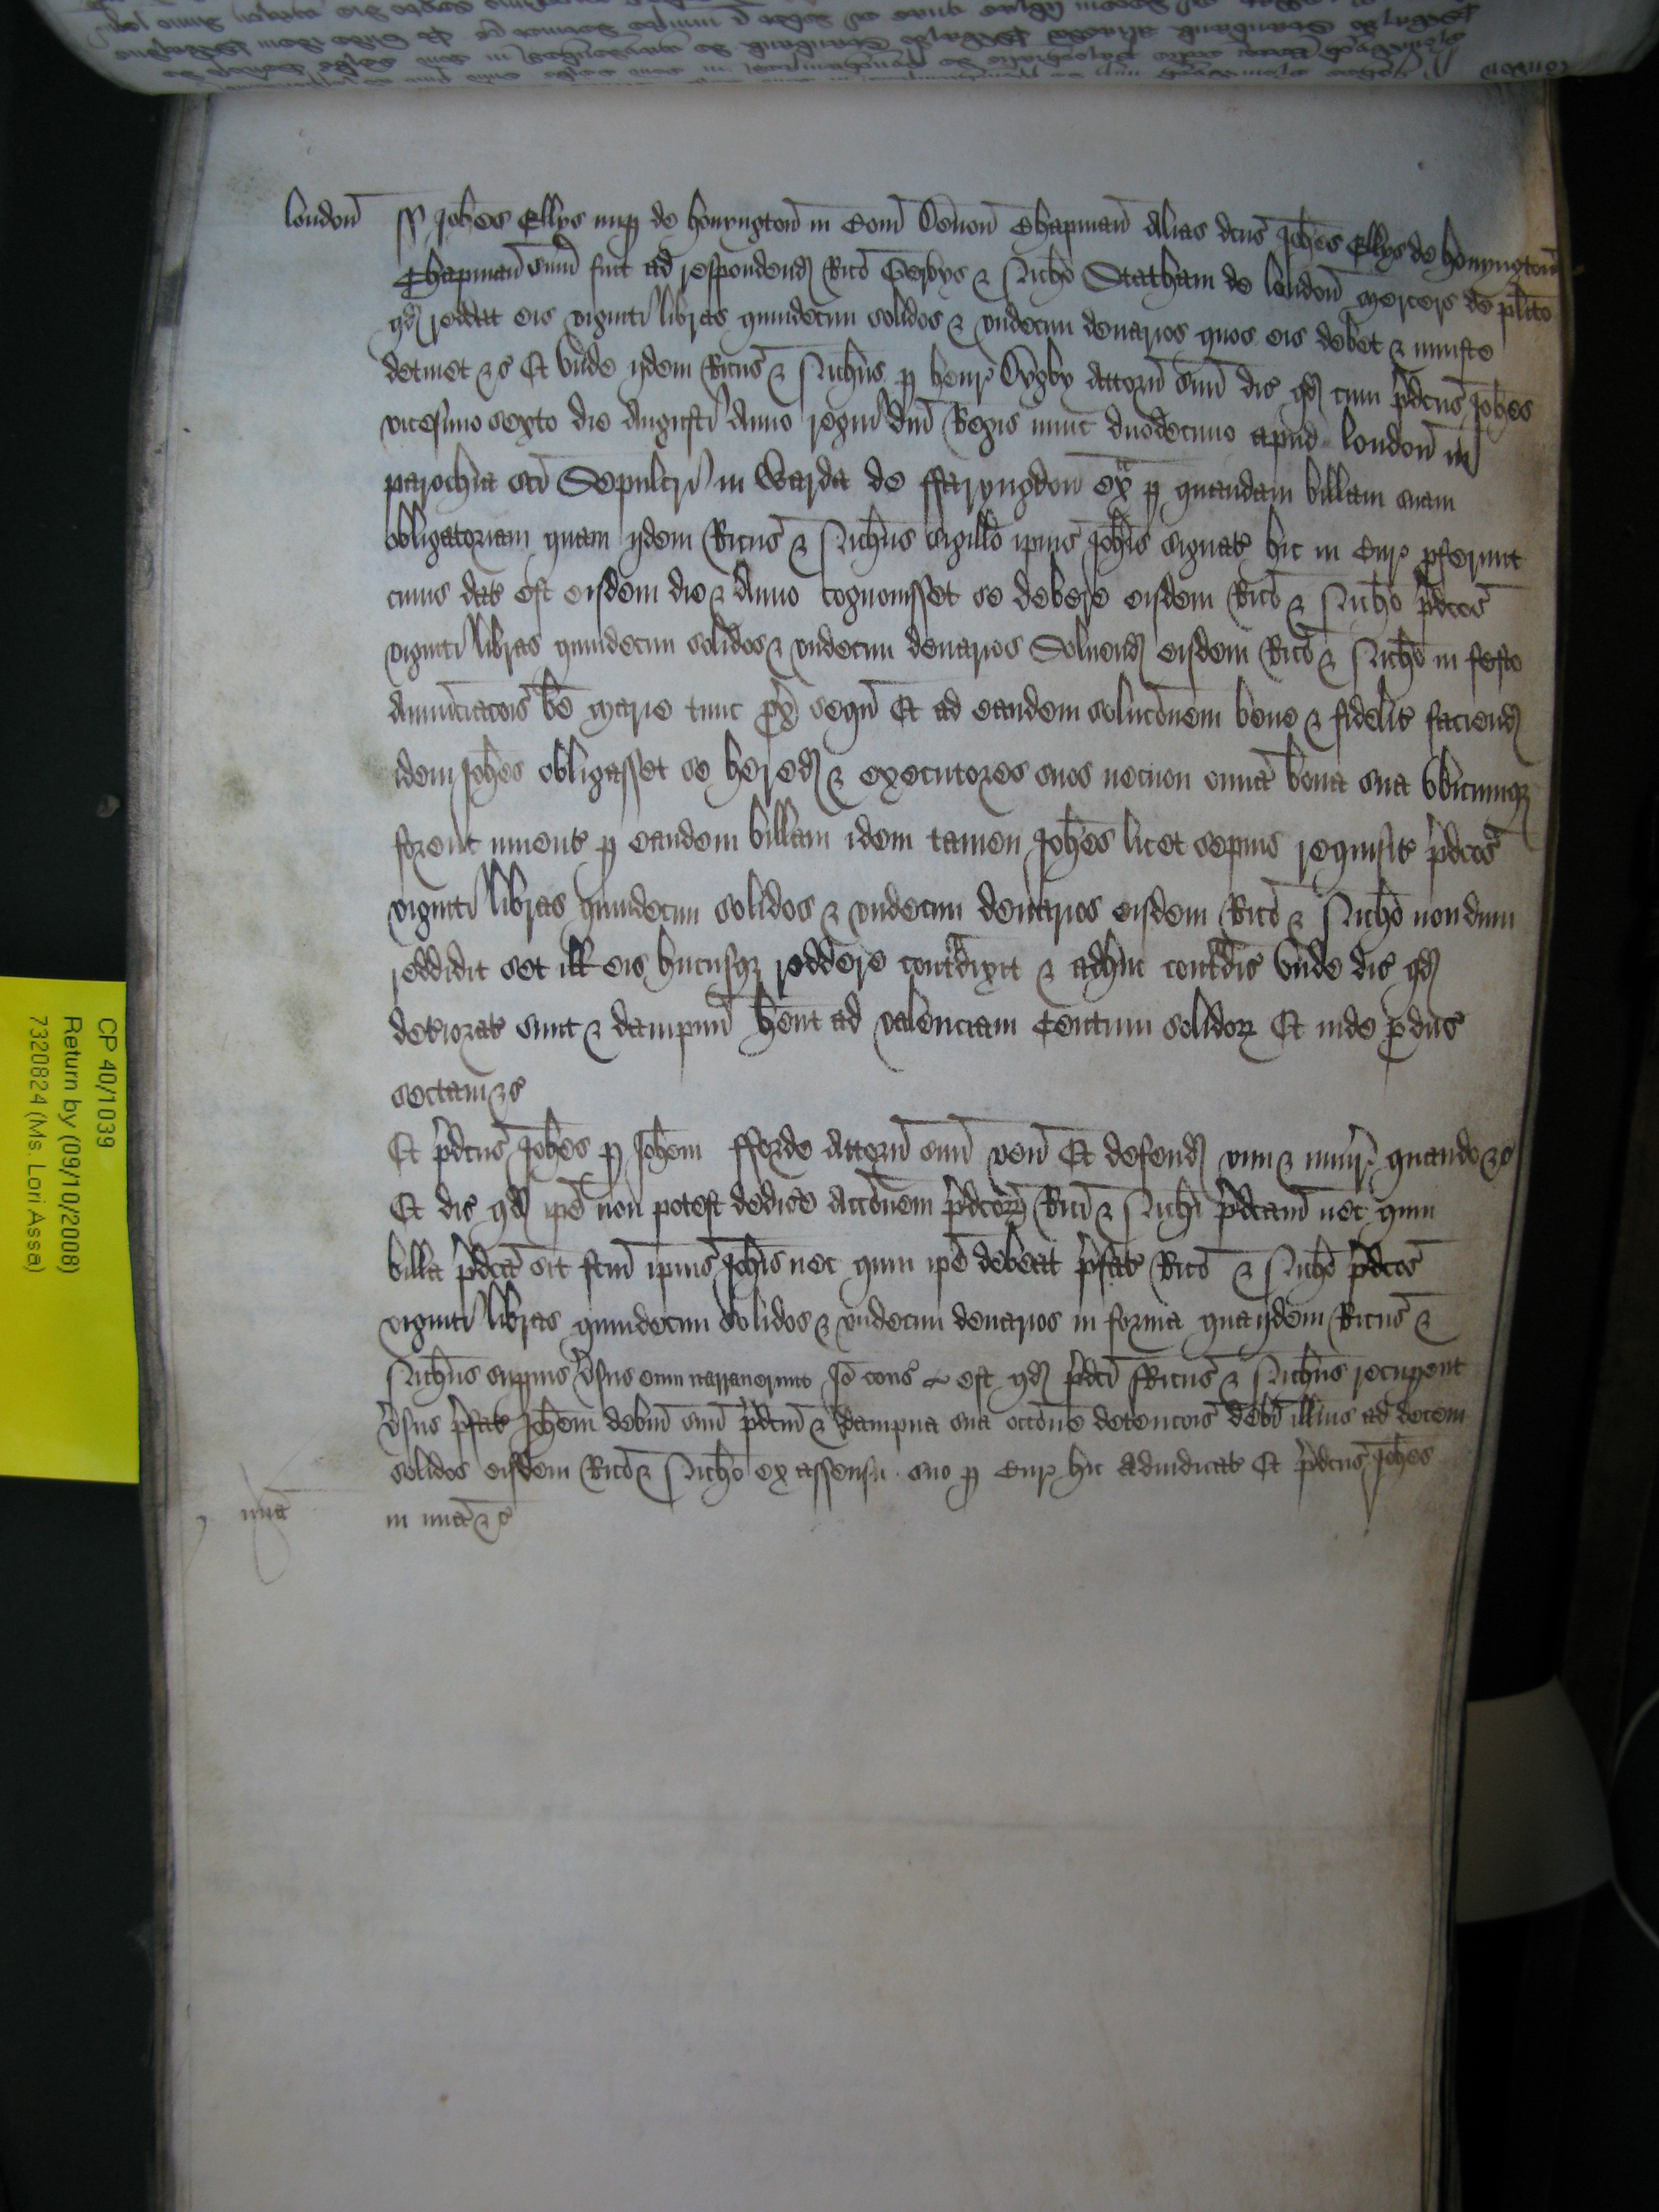 london̄ ss Joh̄es Ellys nup̱ de honyngton̄ in Com̄ Deuon̄ Chapman̄ Alias dc̄us Joh̄es Ellys de honyngton̄
Chapman̄ sum̄ fuit ad respondend̄ Ric̄o Gerbys & Nich̄o Statham de london̄ mercers de pl̄ito
qd̄ reddat eis viginti libras quindecim solidos & vndecim denarios quos eis debet & iniuste
detinet &c̄ Et vnde ijdem Ric̄us & Nich̄us p̱ henr̄ Dygby Attorn̄ suū dic̄ qd̄ cum p̄dc̄us Joh̄es
vicesimo sexto die Augusti Anno regni dn̄i Regis nunc duodecimo apud london̄ in
parochia sc̄i Sepulcri in Warda de ffaryngdon̄ ext̄ p̱ quandam billam suam
obligatoriam quam ijdem Ric̄us & Nich̄us sigillo ip̄ius Joh̄is signat̄ hic in Cur̄ p̱ferunt
cuius dat̄ est eisdem die & Anno cognouisset se debere eisdem Ric̄o & Nich̄o p̄dc̄os
viginti libras quindecim solidos & vndecim denarios Soluend̄ eisdem Ric̄o & Nich̄o in festo
Annunciac̄ois b̄e marie tunc p̱x̄ seqū Et ad eandem soluc̄onem bene & fidelit̄ faciend̄
idem Joh̄es obligasset se hered̄ & executores suos necnon om̄ia bona sua vbicumq̨
forent inuent̄ p̱ eandem billam idem tamen Joh̄es licet sepius requisit̄ p̄dc̄os
viginti libras quindecim solidos & vndecim denarios eisdem Ric̄o & Nich̄o nondum
reddidit set ill̄ eis hucusq̨ reddere cont̄dixit & adhuc cont̄dic̄ vnde dic̄ qd̄
det̄iorat̄ sunt & dampnū h̄ent ad valenciam Centum solidoꝝ Et inde p̱duc̄
sectam &c̄
Et p̄dc̄us Joh̄es p̱ Joh̄em fforde Attorn̄ suū ven̄ Et defend̄ vim & iniur̄ quando &c̄
Et dic̄ qd̄ ip̄e non potest dedic̄e acc̄onem p̄dc̄oꝝ Ric̄i & Nich̄i p̄dc̄am nec quin
billa p̄dc̄a sit fc̄m ip̄ius Joh̄is nec quin ip̄e debeat p̄fat̄ Ric̄o & Nich̄o p̄dc̄os
viginti libras quindecim solidos & vndecim denarios in forma qua ijdem Ric̄us &
Nich̄us sup̱ius v̄sus eum narrauerunt Jō cons̄ est qd̄ p̄dc̄i Ric̄us & Nich̄us recup̱ent
v̄sus p̄fat̄ Joh̄em debm̄ suū p̄dc̄m & dampna sua occ̄one detenc̄ois deb̄i illius ad decem
solidos eisdem Ric̄o & Nich̄o ex assensu suo p̱ Cur̄ hic Adiudicat̄ Et p̄dc̄us Joh̄es
mīa in mīa &c̄
CP 40/1039
Return by (09/10/2008)
7320824 (Ms. Lori Assa)